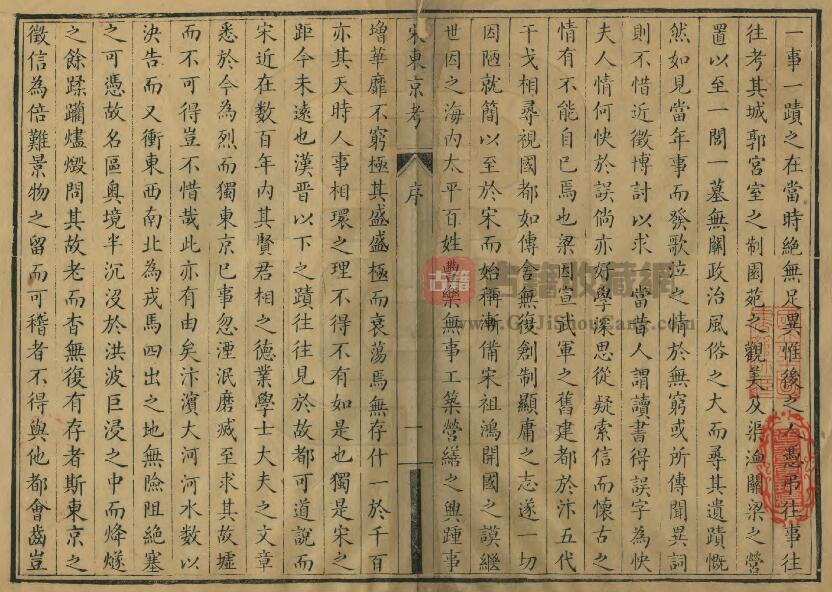 一事一蹟之在當時絶無足異惟後之人憑弔往事往
往考其城郭宮室之制園苑之觀美及渠漁關梁之營
置以至一閭一墓無關政治風俗之大而尋其遺蹟慨
然如見當年事而發歌泣之情於無窮或所傳聞異詞
則不惜近徵博討以求當昔人謂讀書得誤字為快
夫人情何快於誤倘亦好學深思從疑索信而懷古之
情有不能自已焉也梁因宣武軍之舊建都於汴五代
干戈相尋視國都如傳舍無復創制顯庸之志遂一切
因陋就簡以至於宋而始稱漸備宋祖鴻開國之謨繼
世因之海内太平百姓豐樂無事工築營繕之興踵事
宋東京考
序
一
增華靡不窮極其盛盛極而衰蕩焉無存什一於千百
亦其天時人事相環之理不得不有如是也獨是宋之
距今未遠也漢晉以下之蹟往往見於故都可道說而
宋近在数百年内其賢君相之德業學士大夫之文章
悉於今為烈而獨東京已事忽湮泯磨滅至求其故墟
而不可得豈不惜哉此亦有由矣汴濱大河河水数以
決告而又衝東西南北為戎馬四出之地無險阻絶塞
之可憑故名區奧境半沉沒於洪波巨浸之中而烽燧
之餘蹂躪燼燬問其故老而杳無復有存者斯東京之
徵信為倍難景物之留而可稽者不得與他都會齒豈
古籍
古籍收藏網
www.GuJiShouCang.com